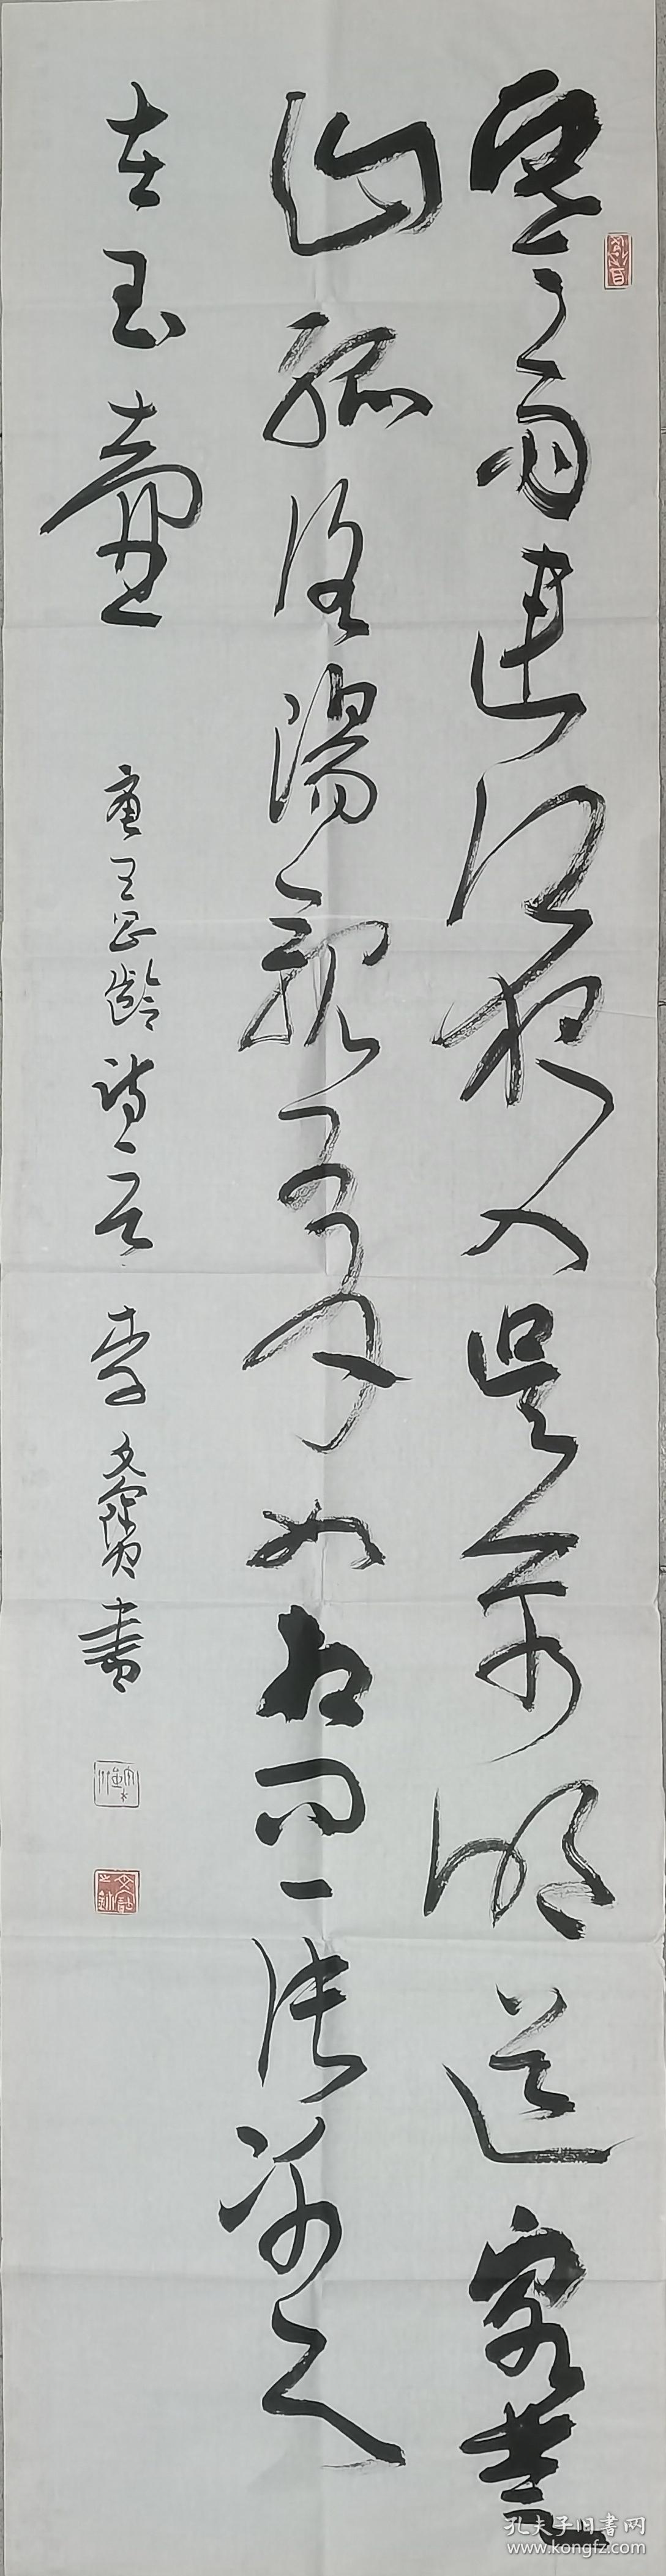 寒雨連江夜入吳平明送客楚
山孤洛陽親友如相问一片冰心
在玉壺
唐王昌齡詩一首 李文寶書
孔夫子旧书网
www.kongfz.com